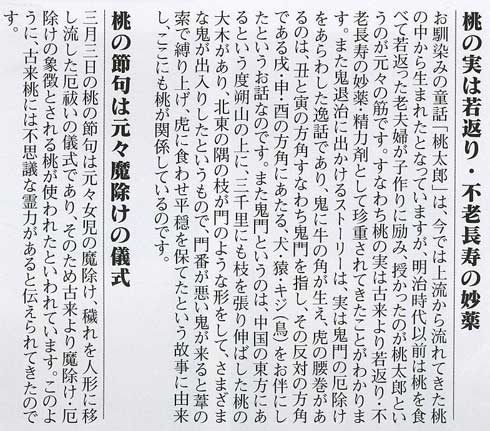 桃の実は若返り・不老長寿の妙薬
お馴染みの童話「桃太郎」は、今では上流から流れてきた桃
の中から生まれたとなっていますが、明治時代以前は桃を食
べて若返った老夫婦が子作りに励み、授かったのが桃太郎とい
うのが元々の筋です。すなわち桃の実は古来より若返り・不
老長寿の妙薬・精力剤として珍重されてきたことがわかりま
す。また鬼退治に出かけるストーリーは、実は鬼門の厄除け
をあらわした逸話であり、鬼に牛の角が生え、虎の腰巻があ
るのは、丑と寅の方角すなわち鬼門を指し、その反対の方角
である戌・申・酉の方角にあたる、犬・猿・キジ(鳥)をお伴にし
たというお話なのです。また鬼門というのは、中国の東方にあ
るという度朔山の上に、三千里にも枝を張り伸ばした桃の
大木があり、北東の隅の枝が門のような形をして、さまざま
な鬼が出入りしたというもので、門番が悪い鬼が来ると葦の
索で縛り上げ、虎に食わせ平穏を保てたという故事に由来
し、ここにも桃が関係しているのです。
桃の節句は元々魔除けの儀式
三月三日の桃の節句は元々女児の魔除け、穢れを人形に移
し流した厄祓いの儀式であり、そのため古来より魔除け・厄
除けの象徴とされる桃が使われたといわれています。このよ
うに、古来桃には不思議な霊力があると伝えられてきたので